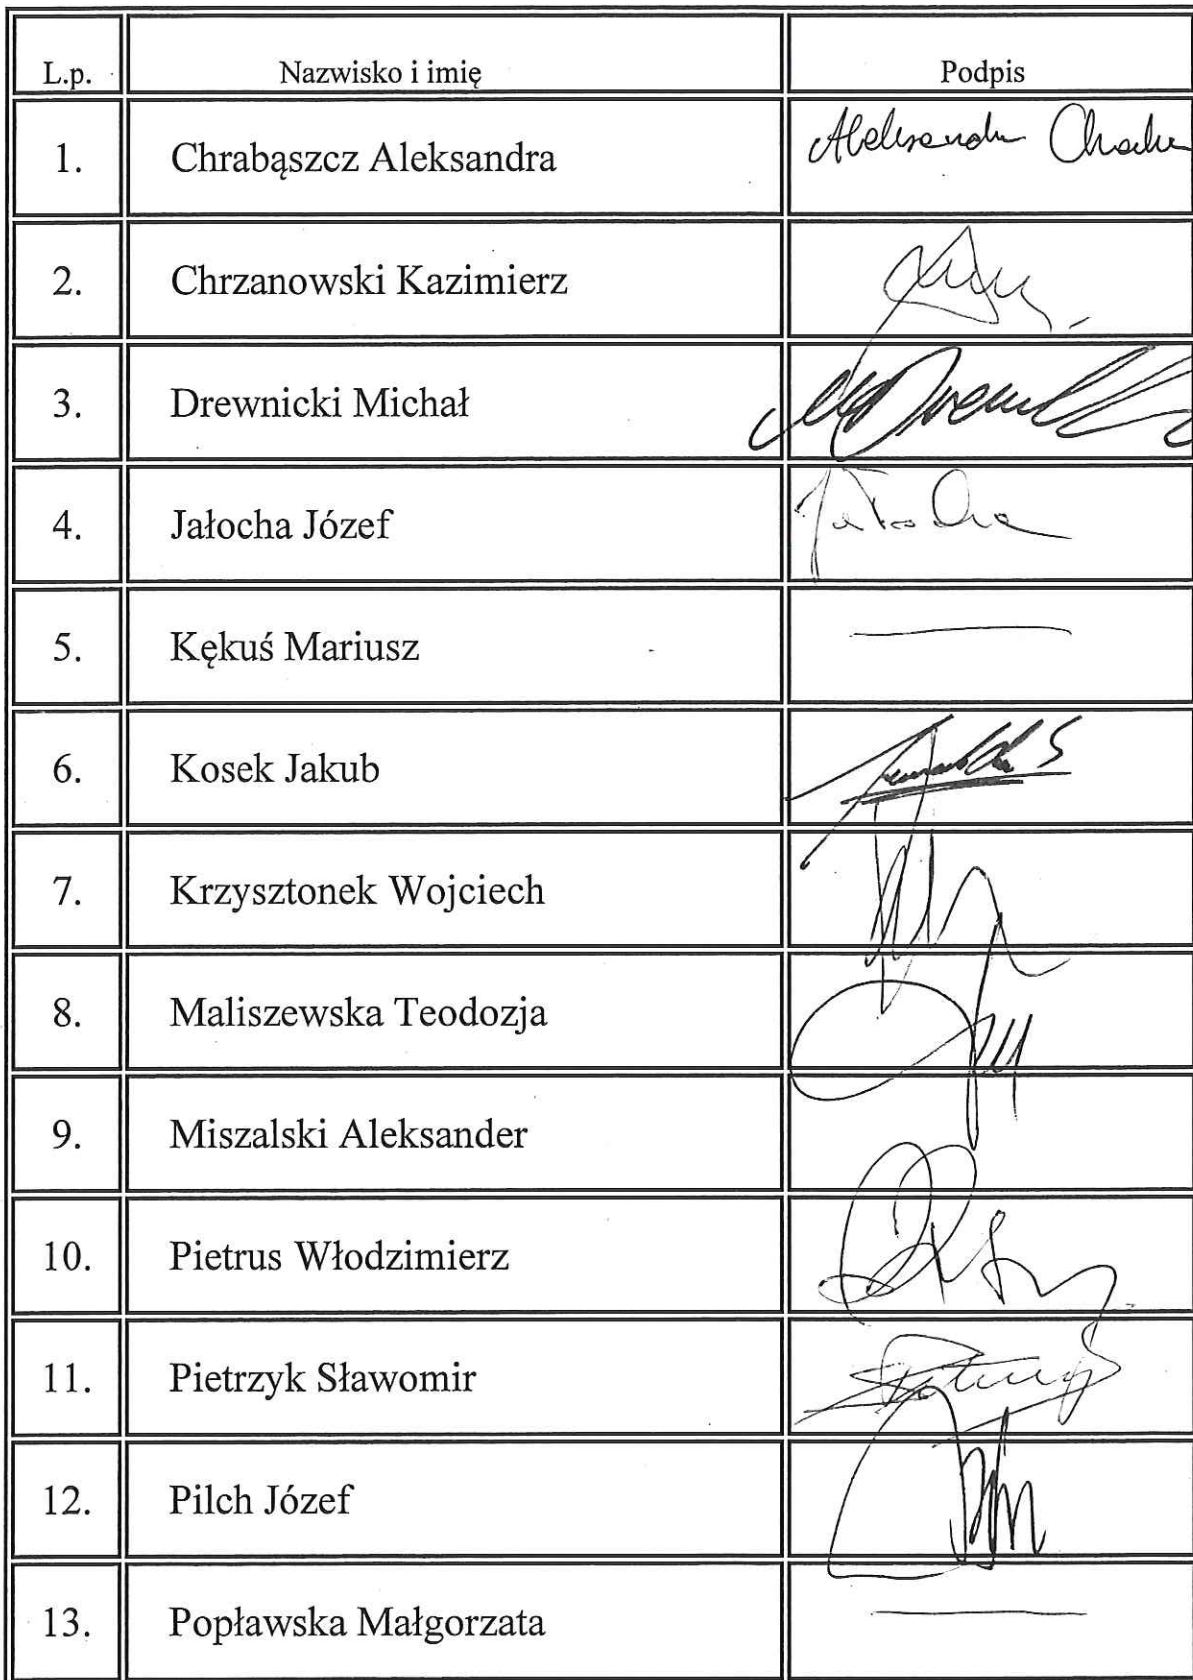 L.p. Nazwisko i imię Podpis
1. Chrabąszcz Aleksandra Aleksandra
2. Chrzanowski Kazimierz
3. Drewnicki Michał
4. Jałocha Józef Jałocha
5. Kękuś Mariusz
6. Kosek Jakub
7. Krzysztonek Wojciech
8. Maliszewska Teodozja
9. Miszalski Aleksander
10. Pietrus Włodzimierz
11. Pietrzyk Sławomir
12. Pilch Józef
13. Popławska Małgorzata